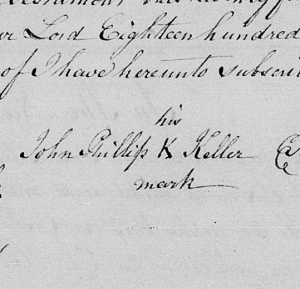 er Lord Eighteen hundred
of I have hereunto subscri
his
John Phillip K Keller
mark